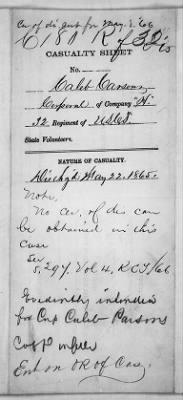 of dis
for May. 2. 66
6181 R 32
CASUALTY SHEET
No.
Caleb Carsons,
Corporal of Company "H"
32 Regiment of USCT.
State Volunteers.
NATURE OF CASUALTY.
Disch'g'd May 22. 1865.
Note,
No of dis can
be obtained in this
case
See
5,294. Vol 4, 66
Evidently intended
for Cop Caleb Parsons
Ent on of Cas.